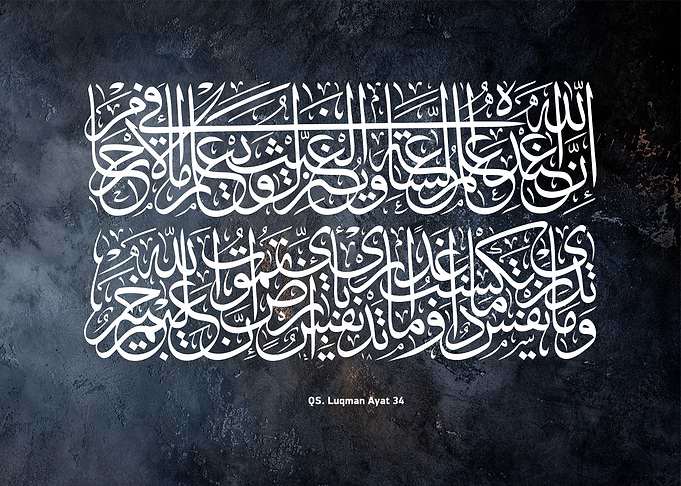 إِنَّ اللَّهَ عِنْدَهُ عِلْمُ السَّاعَةِ وَيُنَزِّلُ الْغَيْثَ وَيَعْلَمُ مَا فِي الْأَرْحَامِ
وَمَا تَدْرِي نَفْسٌ مَاذَا تَكْسِبُ غَدًا وَمَا تَدْرِي نَفْسٌ بِأَيِّ أَرْضٍ تَمُوتُ إِنَّ اللَّهَ عَلِيمٌ خَبِيرٌ
QS. Luqman Ayat 34